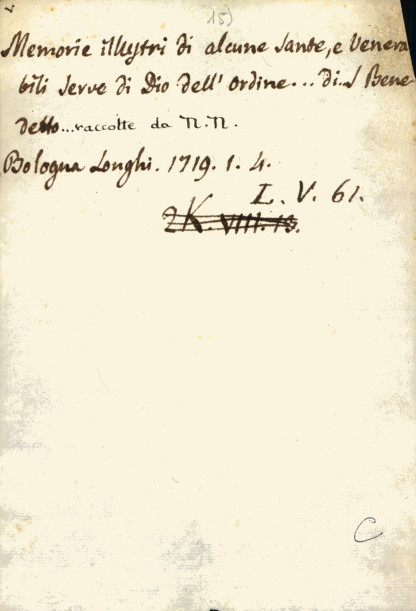 15)
Memorie illustri di alcune Sante, e Venera
bili Serve di Dio dell' Ordine... di S Bene
detto...raccolte da N.N.
Bologna Longhi. 1719. 1. 4.
L. V. 61.
2K. VIII. 10.
C